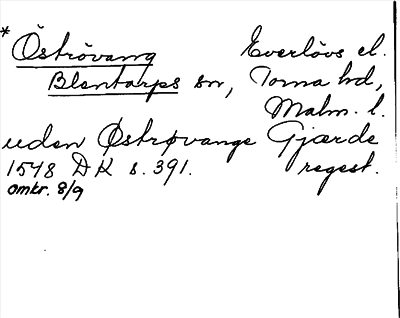 * Öströvang Everlövs el.
Blentarps sn, Torna hd,
Malm. l.
uden Østrøvange Gjærde
1548 DK s. 391. regest.
omkr. 8/9